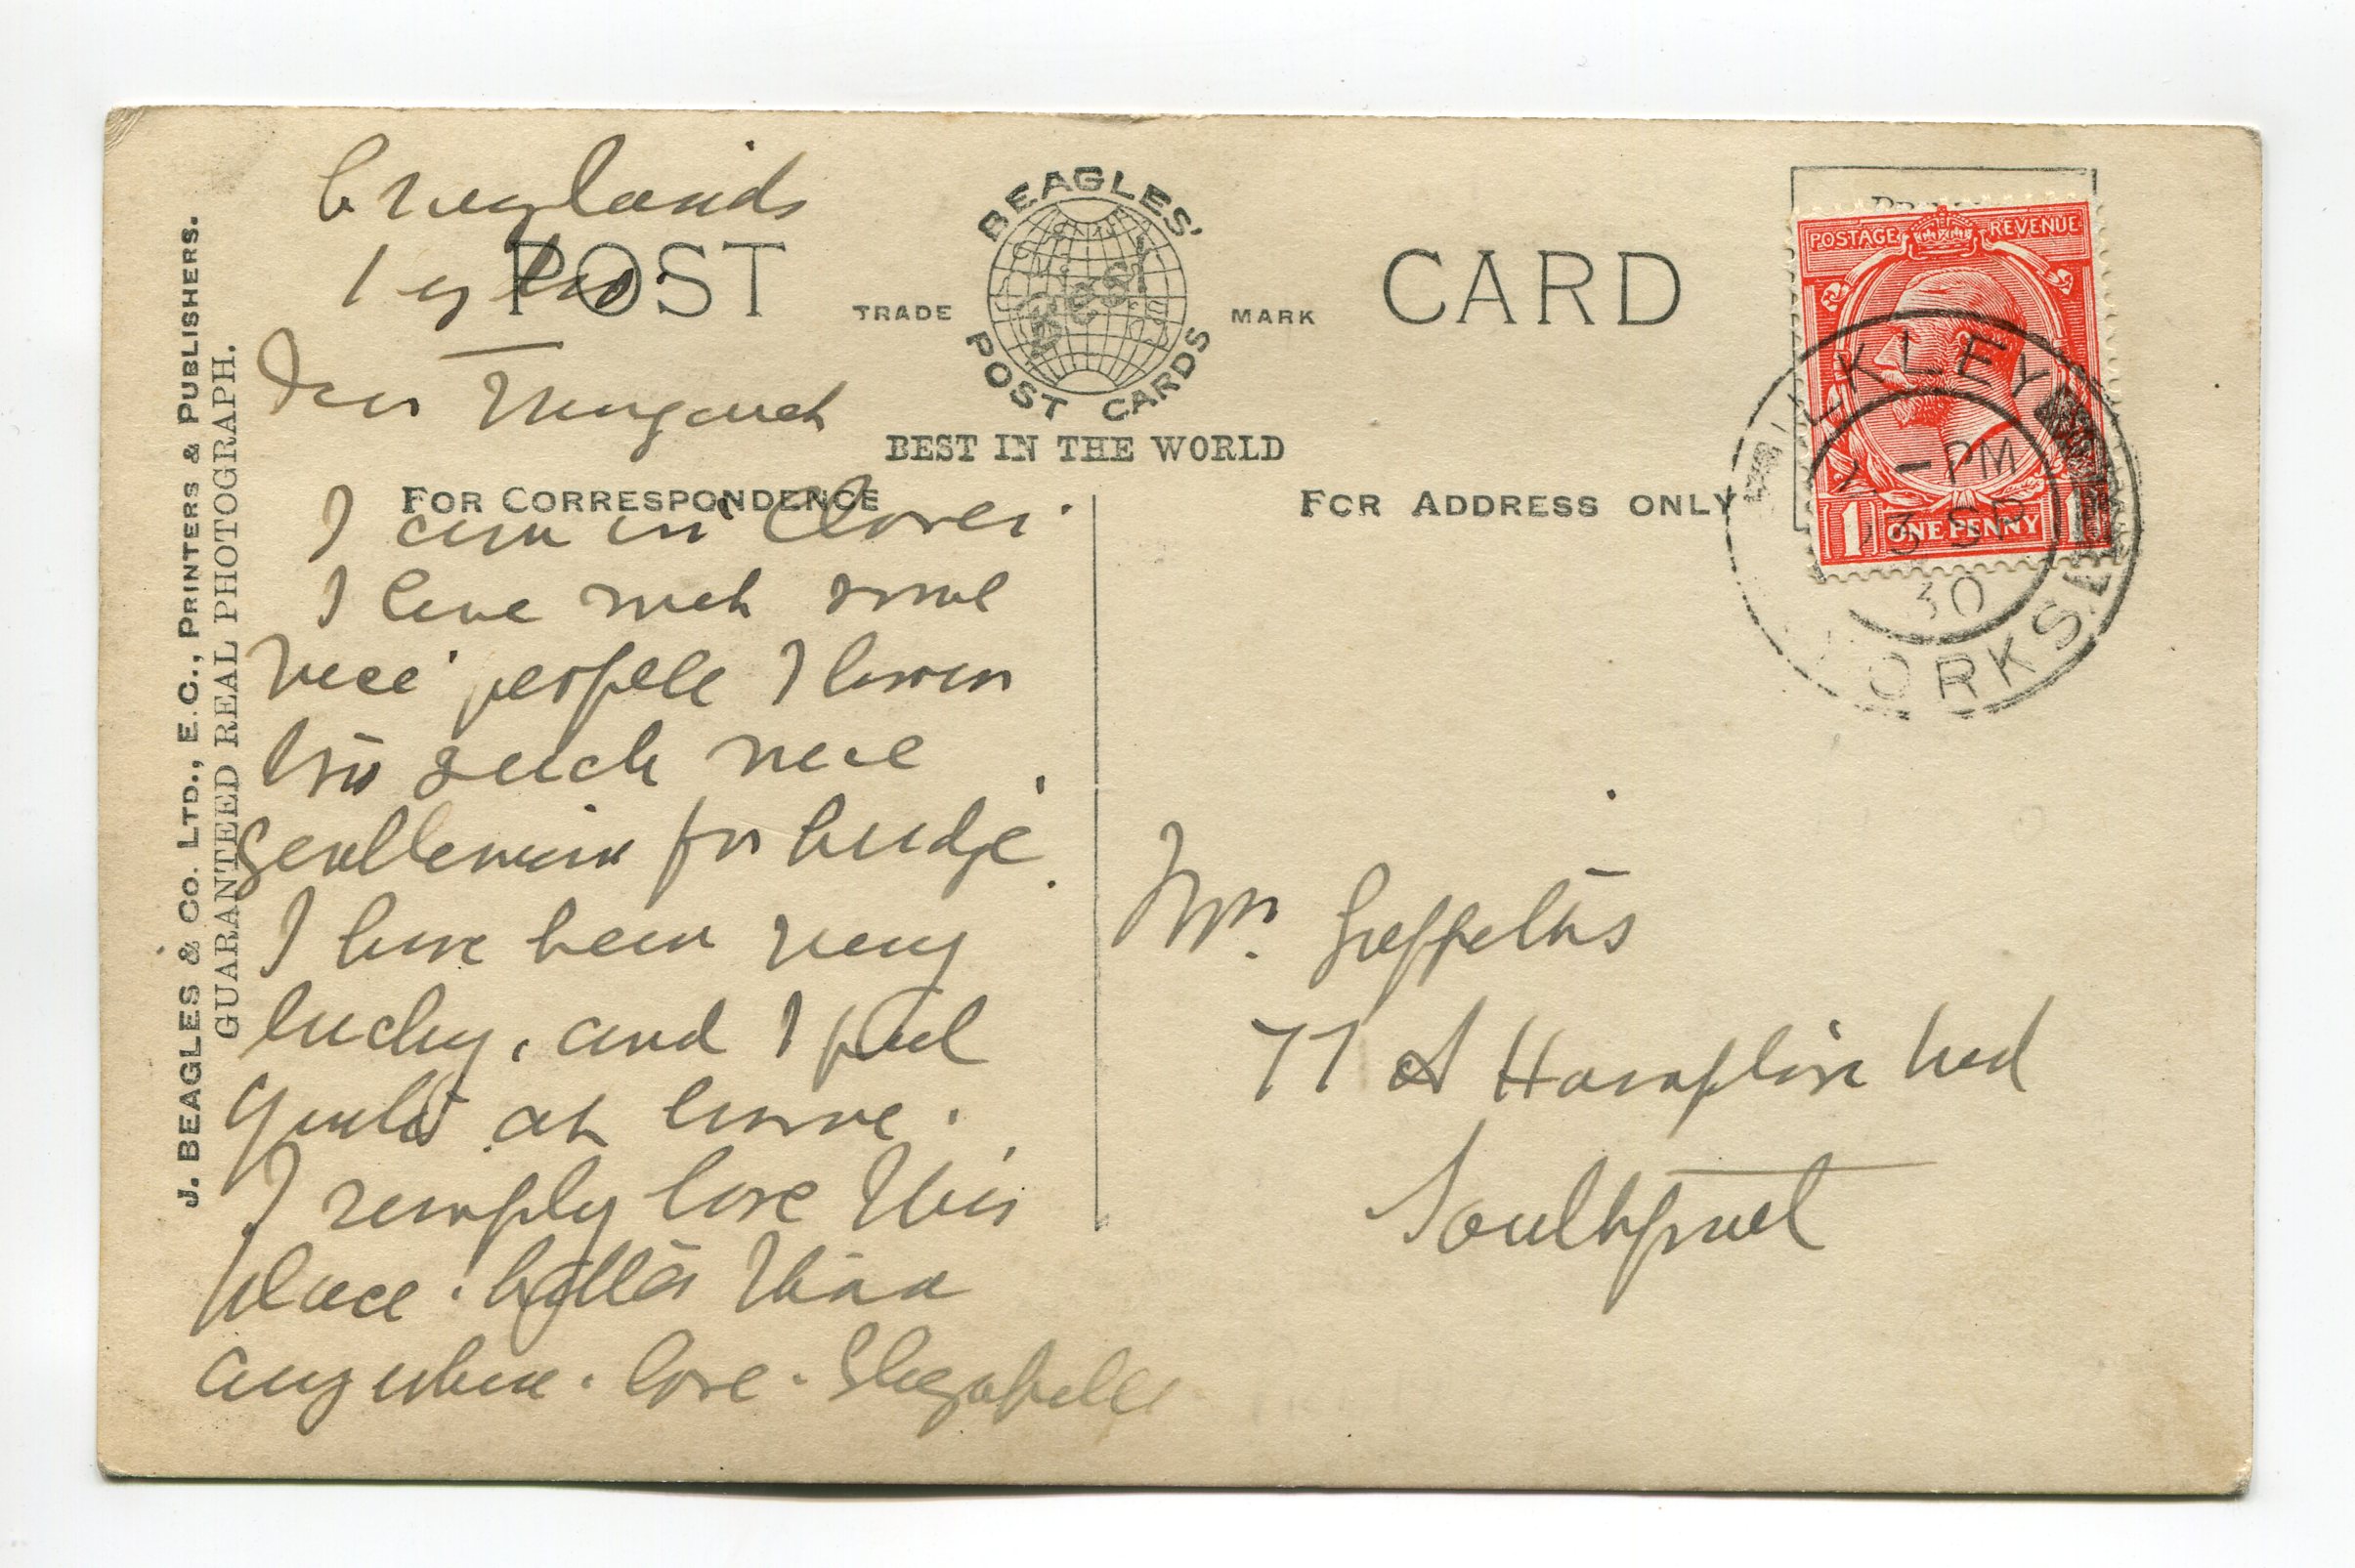 J. BEAGLES & CO. LTD., E.C., PRINTERS & PUBLISHERS.
GUARANTEED REAL PHOTOGRAPH.
POST CARD
BEAGLES'
Best
POST CARDS
TRADE MARK
BEST IN THE WORLD
FOR CORRESPONDENCE
FOR ADDRESS ONLY
Craiglands
Dear Margaret
I am in Clover.
I have met some
nice people I know
two such nice
gentlemen for bridge.
I have been very
lucky, and I feel
quite at home.
I simply love this
place. better than
anywhere. love. Elizabeth
Mrs. Griffiths
77 A Hampton Rd
Southport
POSTAGE REVENUE
1 ONE PENNY 1
ILKLEY
- PM
13 SP
30
YORKS